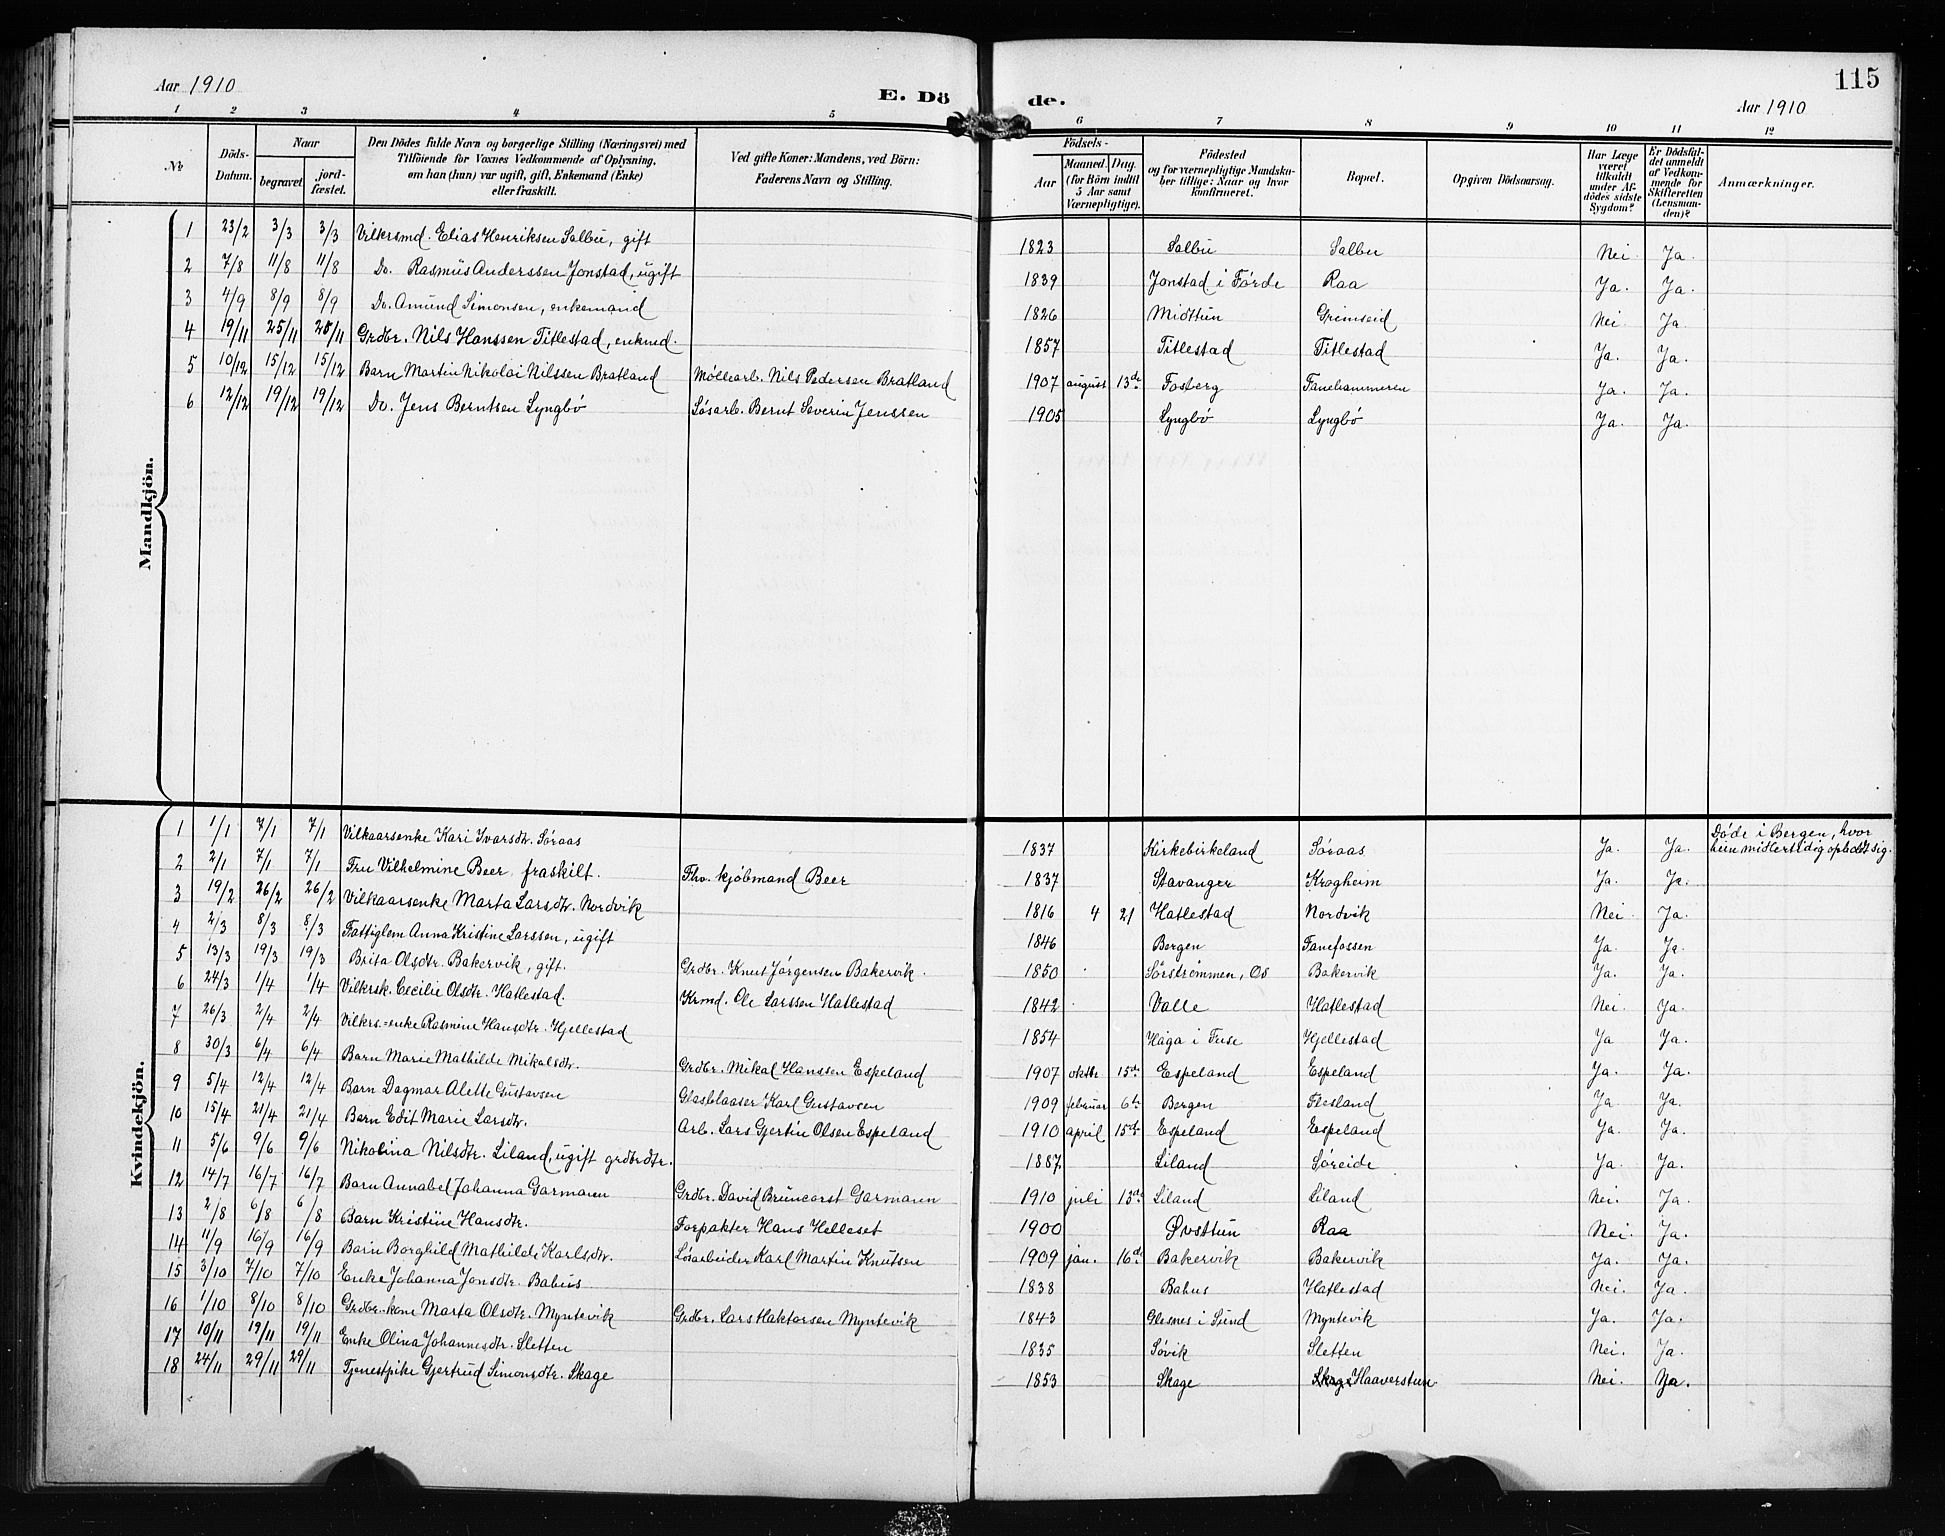 Aar 1910
E. Dö
de.
115
Aar 1910
1 2 3 4 5 6 7 8 9 10 11 12
No
Döds-Datum.
Naar
begravet.
jordfæstet.
Den Dödes fulde Navn og borgerlige Stilling (Næringsvei) med
Tilföiende for Voxnes Vedkommende af Oplysning,
om han (hun) var ugift, gift, Enkemand (Enke)
eller fraskilt.
Ved gifte Koner: Mandens, ved Börn:
Faderens Navn og Stilling.
Födsels-
Aar
Maaned. Dag.
(for Börn indtil
5 Aar samt
Værnepligtige).
Födested
og for værnepligtige Mandskaber tillige: Naar og hvor
konfirmeret.
Bopæl.
Opgiven Dödsaarsag.
Har Læge
været
tilkaldt
under Afdödes sidste
Sygdom?
Er Dödsfaldet anmeldt
af Vedkommende for
Skifteretten
(Lensmanden)?
Anmærkninger.
Mandkjön.
1 23/2 3/3 3/3 Vilkrsmd. Elias Henriksen Salbu, gift 1823 Salbu Salbu Nei Ja
2 7/8 11/8 11/8 Do. Rasmus Anderssen Jonstad, ugift 1839 Jonstad i Førde Raa Ja. Ja.
3 4/9 8/9 8/9 Do. Amund Simonsen, enkemand 1826 Midttun Grimseid Nei. Ja
4 19/11 25/11 25/11 Grdbr. Nils Hanssen Titlestad, enkmd. 1857 Titlestad Titlestad Ja. Ja.
5 10/12 15/12 15/12 Barn Martin Nikolai Nilssen Bratland Møllearb. Nils Pedersen Bratland 1907 august 13de Fosberg Fanehammeren Ja. Ja.
6 12/12 19/12 19/12 Do. Jens Berntsen Lyngbø Løsarb. Bernt Severin Jenssen 1905 Lyngbø Lyngbø Ja. Ja.
Kvindekjön.
1 1/1 7/1 7/1 Vilkaarsenke Kari Ivarsdtr. Søraas 1837 Kirkebirkeland Søraas Ja. Ja. Døde i Bergen, hvor
hun midlertidig opholdt sig.
2 2/1 7/1 7/1 Fru Vilhelmine Beer, fraskilt. Fhv. kjøbmand Beer 1837 Stavanger Krogheim Ja. Ja.
3 19/2 26/2 26/2 Vilkaarsenke Marta Larsdtr. Nordvik 1816 4 21 Hatlestad Nordvik Nei. Ja.
4 2/3 8/3 8/3 Fattiglem Anna Kristine Larssen, ugift 1846 Bergen Fanefossen Ja. Ja
5 13/3 19/3 19/3 Brita Olsdtr. Bakervik, gift. Grdbr. Knut Jørgensen Bakervik. 1850 Sørstrømmen, Os Bakervik Ja. Ja.
6 24/3 1/4 1/4 Vilkrsk. Cecilie Olsdtr. Hatlestad. Krmd. Ole Larssen Hatlestad 1842 Valle Hatlestad Nei. Ja.
7 26/3 2/4 2/4 Vilkrs.=enke Rasmine Hansdtr. Hjellestad 1854 Håga i Fuse Hjellestad Ja Ja.
8 30/3 6/4 6/4 Barn Marie Mathilde Mikalsdtr. Grdbr. Mikal Hanssen Espeland 1907 oktbr 15de Espeland Espeland Ja. Ja.
9 5/4 12/4 12/4 Barn Dagmar Alette Gustavsen Glasblaaser Karl Gustavsen 1909 februar 6te Bergen Flesland Ja Ja.
10 15/4 21/4 21/4 Barn Edit Marie Larsdtr. Arb. Lars Gjertin Olsen Espeland 1910 april 15de Espeland Espeland Ja. Ja.
11 5/6 9/6 9/6 Nikolina Nilsdtr. Liland, ugift grdbrdtr. 1887 Liland Søreide Ja. Ja.
12 14/7 16/7 16/7 Barn Annabel Johanna Garmann Grdbr. David Bruncorst Garmann 1910 juli 13de Liland Liland Nei. Ja.
13 2/8 6/8 6/8 Barn Kristine Hansdtr. Forpakter Hans Helleset 1900 Øvsttun Raa Nei. Ja.
14 11/9 16/9 16/9 Barn Borghild Mathilde Karlsdtr. Løsarbeider Karl Martin Knutsen 1909 jan. 16de Bakervik Bakervik Ja. Ja.
15 3/10 7/10 7/10 Enke Johanna Jonsdtr. Bahus 1838 Bahus Hatlestad Nei. Ja.
16 1/10 8/10 8/10 Grdbr.-kone Marta Olsdtr. Myntevik Grdbr. Lars Haktorsen Myntevik 1843 Glesnes i Sund Myntevik Ja. Ja.
17 10/11 19/11 19/11 Enke Olina Johannesdtr. Sletten 1835 Søvik Sletten Nei. Ja.
18 24/11 29/11 29/11 Tjenestpike Gjertrud Simonsdtr. Skage 1853 Skage Skage Haaverstun Nei. Ja.